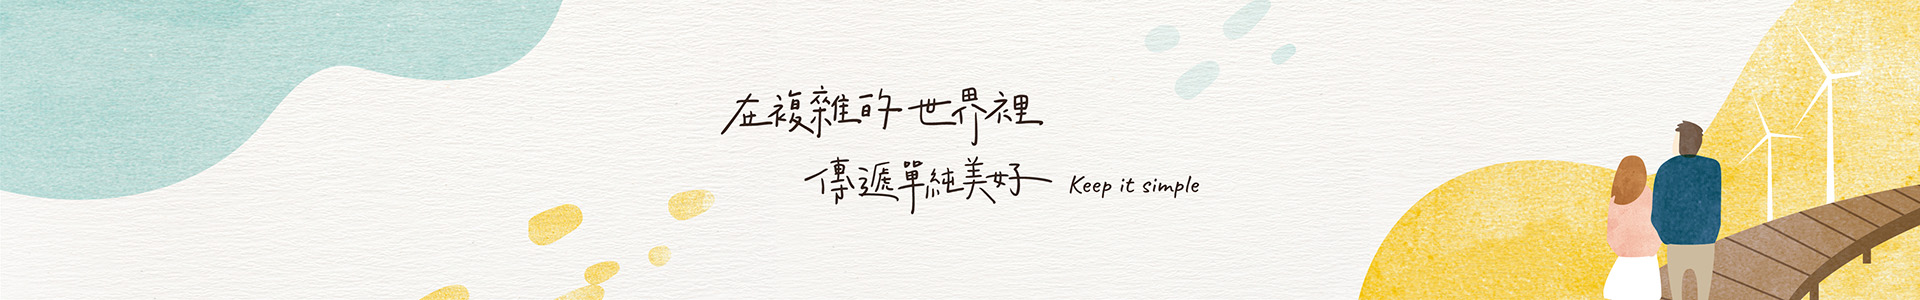 在複雜的世界裡
傳遞單純美好 Keep it simple